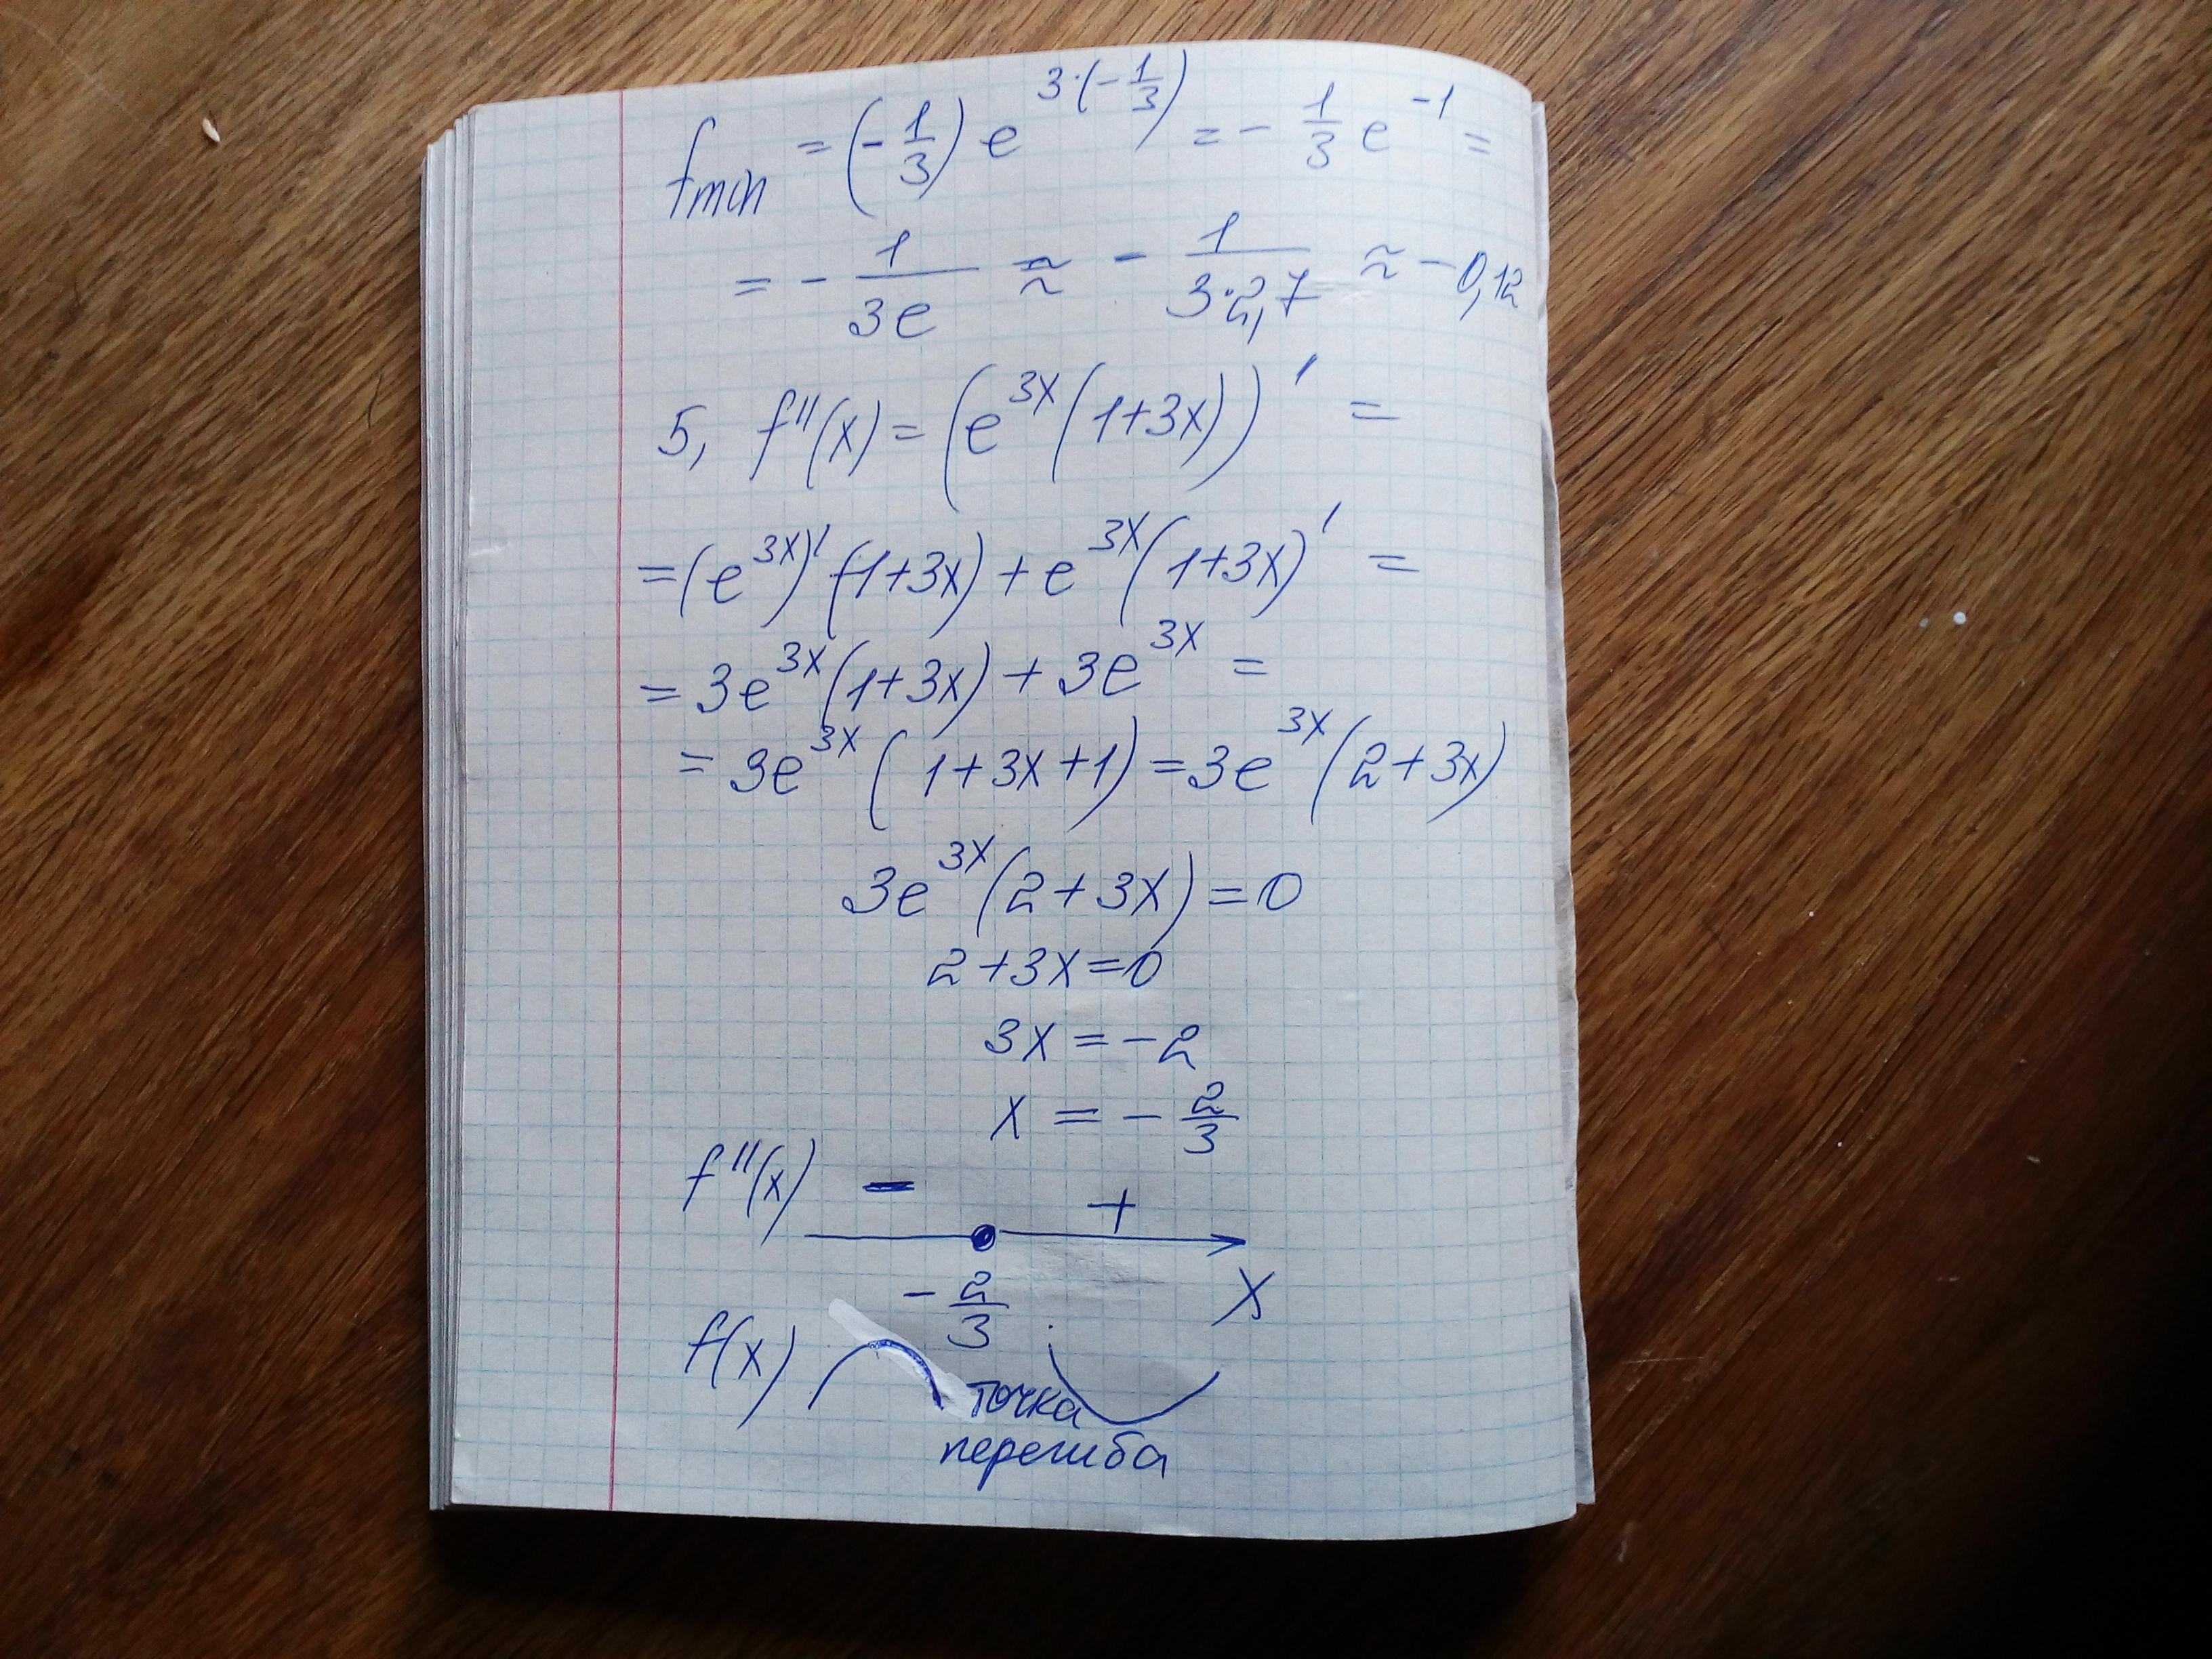 fmin = (-1/3) e^{3·(-1/3)} = -1/3 e^{-1} =
= - 1/3e ≈ - 1/3·2,7 ≈ -0,12
5, f''(x) = (e^{3x}(1+3x))' =
= (e^{3x})' (1+3x) + e^{3x}(1+3x)' =
= 3e^{3x}(1+3x) + 3e^{3x} =
= 3e^{3x}(1+3x+1) = 3e^{3x}(2+3x)
3e^{3x}(2+3x) = 0
2+3x=0
3x = -2
x = -2/3
f''(x) - +
-2/3 x
f(x)
точка
перегиба